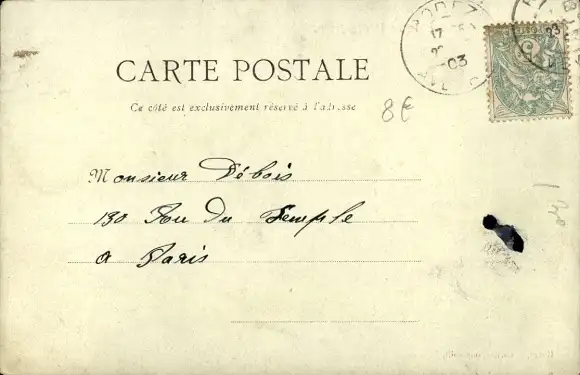 CARTE POSTALE
Ce côté est exclusivement réservé à l'adresse
8€
Monsieur Débois
130 Rue du Temple
a Paris
17
03